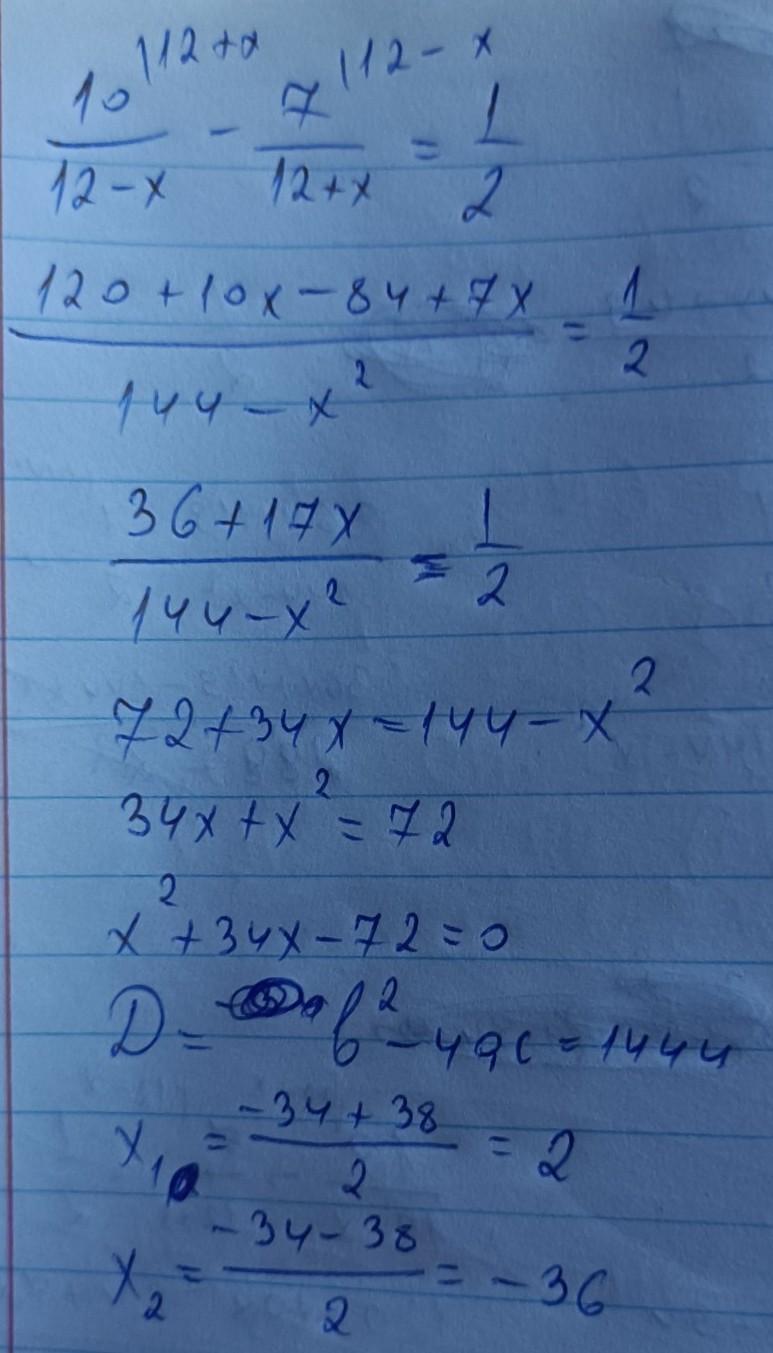 10 |12+x / 12-x - 7 |12-x / 12+x = 1/2
120+10x-84+7x / 144-x² = 1/2
36+17x / 144-x² = 1/2
72+34x=144-x²
34x+x²=72
x²+34x-72=0
D= b²-4ac=1444
x₁ = -34+38 / 2 = 2
x₂ = -34-38 / 2 = -36